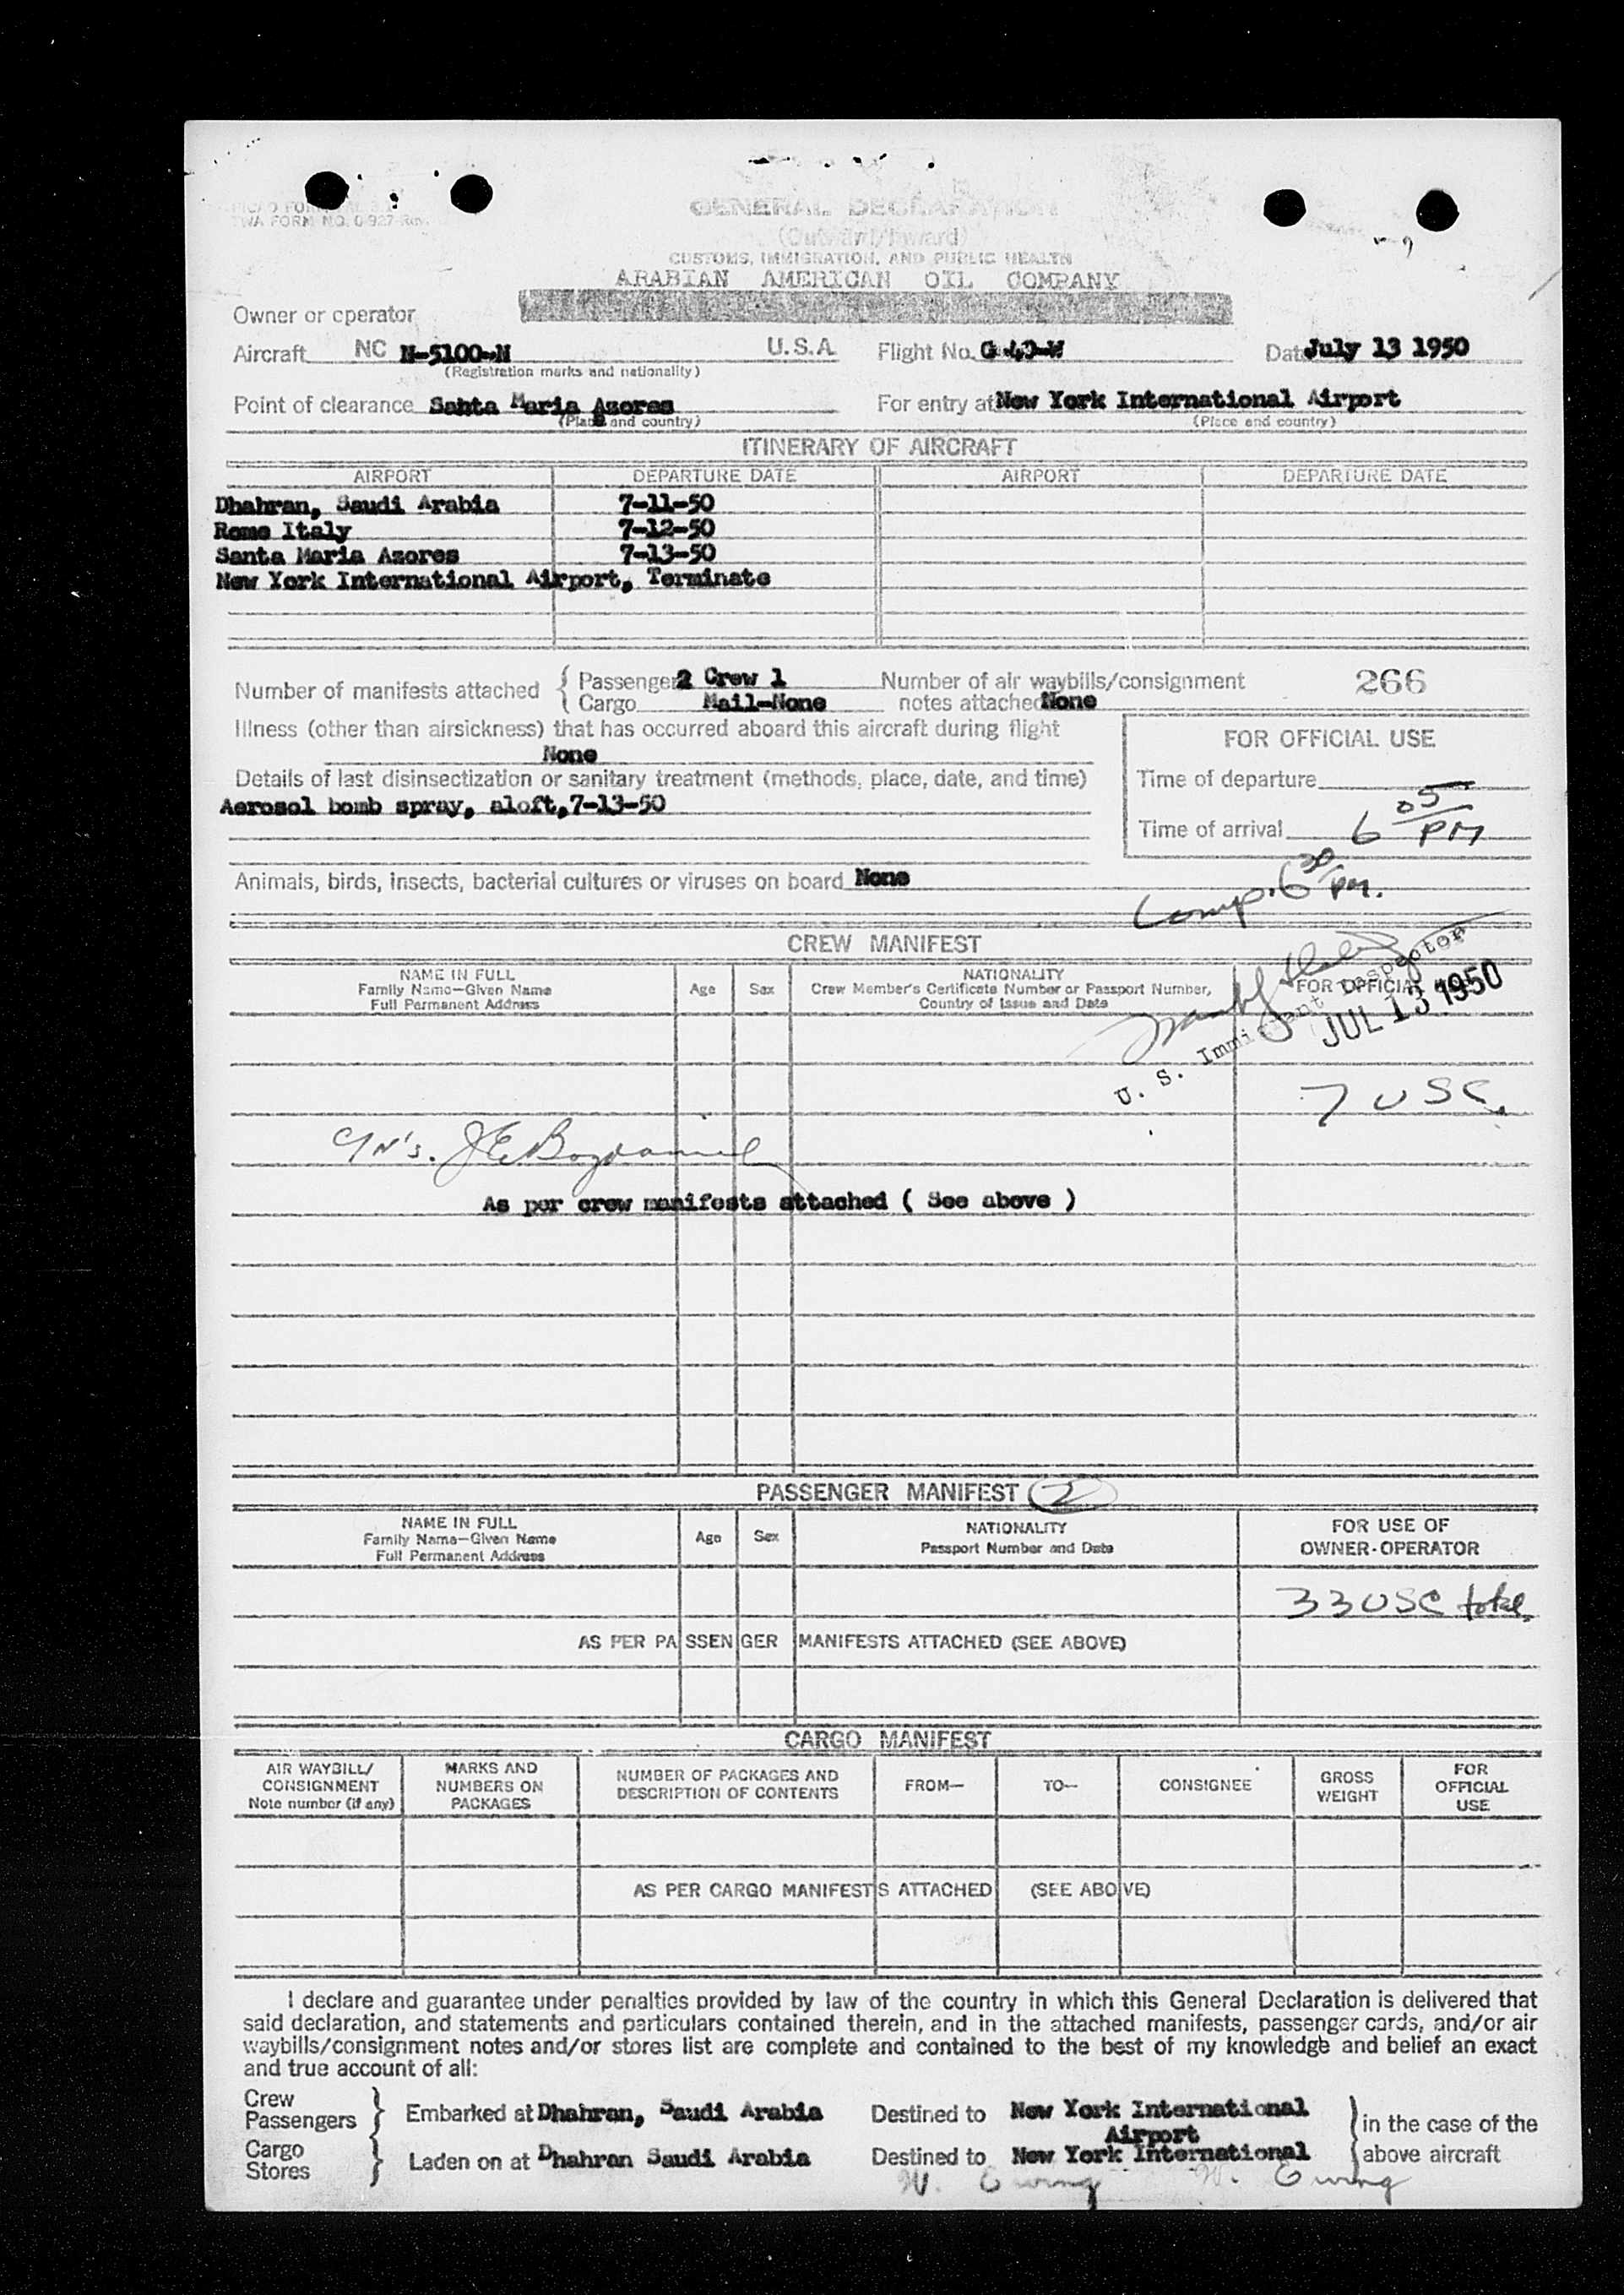 TWA FORM NO. 0-927-Rev.
GENERAL DECLARATION
(Outward/Inward)
CUSTOMS, IMMIGRATION, AND PUBLIC HEALTH
ARABIAN AMERICAN OIL COMPANY
Owner or operator
Aircraft NC N-5100-N U.S.A. Flight No. Date July 13 1950
(Registration marks and nationality)
Point of clearance Sahta Maria Azores For entry at New York International Airport
(Place and country) (Place and country)
ITINERARY OF AIRCRAFT
AIRPORT DEPARTURE DATE AIRPORT DEPARTURE DATE
Dhahran, Saudi Arabia 7-11-50
Rome Italy 7-12-50
Santa Maria Azores 7-13-50
New York International Airport, Terminate
Number of manifests attached { Passenger 2 Crew 1 Number of air waybills/consignment 266
Cargo Mail-None notes attached None
Illness (other than airsickness) that has occurred aboard this aircraft during flight
None
FOR OFFICIAL USE
Details of last disinsectization or sanitary treatment (methods, place, date, and time)
Time of departure
Aerosol bomb spray, aloft,7-13-50
Time of arrival 6 05 PM
Animals, birds, insects, bacterial cultures or viruses on board None
Comp. 6 30 PM.
CREW MANIFEST
NAME IN FULL
Family Name—Given Name
Full Permanent Address
Age
Sex
NATIONALITY
Crew Member's Certificate Number or Passport Number,
Country of Issue and Date
FOR OFFICIAL USE
U. S. Immigrant Inspector
JUL 13 1950
7 USC.
As per crew manifests attached ( See above )
PASSENGER MANIFEST 2
NAME IN FULL
Family Name—Given Name
Full Permanent Address
Age
Sex
NATIONALITY
Passport Number and Date
FOR USE OF
OWNER-OPERATOR
33 USC total.
AS PER PASSENGER MANIFESTS ATTACHED (SEE ABOVE)
CARGO MANIFEST
AIR WAYBILL/
CONSIGNMENT
Note number (if any)
MARKS AND
NUMBERS ON
PACKAGES
NUMBER OF PACKAGES AND
DESCRIPTION OF CONTENTS
FROM—
TO—
CONSIGNEE
GROSS
WEIGHT
FOR
OFFICIAL
USE
AS PER CARGO MANIFESTS ATTACHED (SEE ABOVE)
I declare and guarantee under penalties provided by law of the country in which this General Declaration is delivered that
said declaration, and statements and particulars contained therein, and in the attached manifests, passenger cards, and/or air
waybills/consignment notes and/or stores list are complete and contained to the best of my knowledge and belief an exact
and true account of all:
Crew
Passengers } Embarked at Dhahran, Saudi Arabia Destined to New York International
Airport
Cargo
Stores } Laden on at Dhahran Saudi Arabia Destined to New York International
} in the case of the
above aircraft
W. Ewing W. Ewing